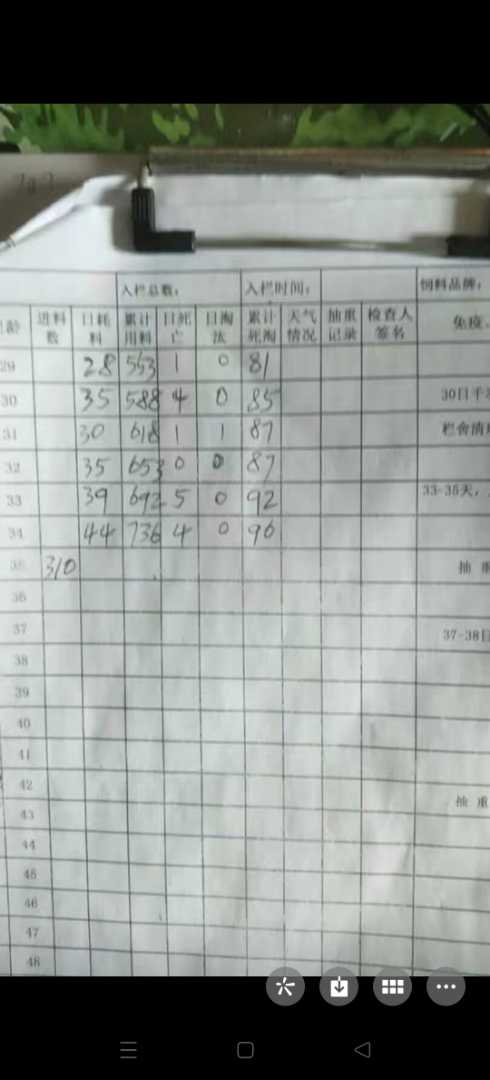 入栏总数： 入栏时间： 饲料品牌：
日龄 进料数 日耗料 累计用料 日死亡 日淘汰 累计死淘 天气情况 抽重记录 检查人签名 免疫、
29 28 553 1 0 81
30 35 588 4 0 85 30日千
31 30 618 1 1 87 栏舍清
32 35 653 0 0 87
33 39 692 5 0 92 33-35天，
34 44 736 4 0 96
35 310 抽重
36
37 37-38日
38
39
40
41
42
43 抽重
44
45
46
47
48